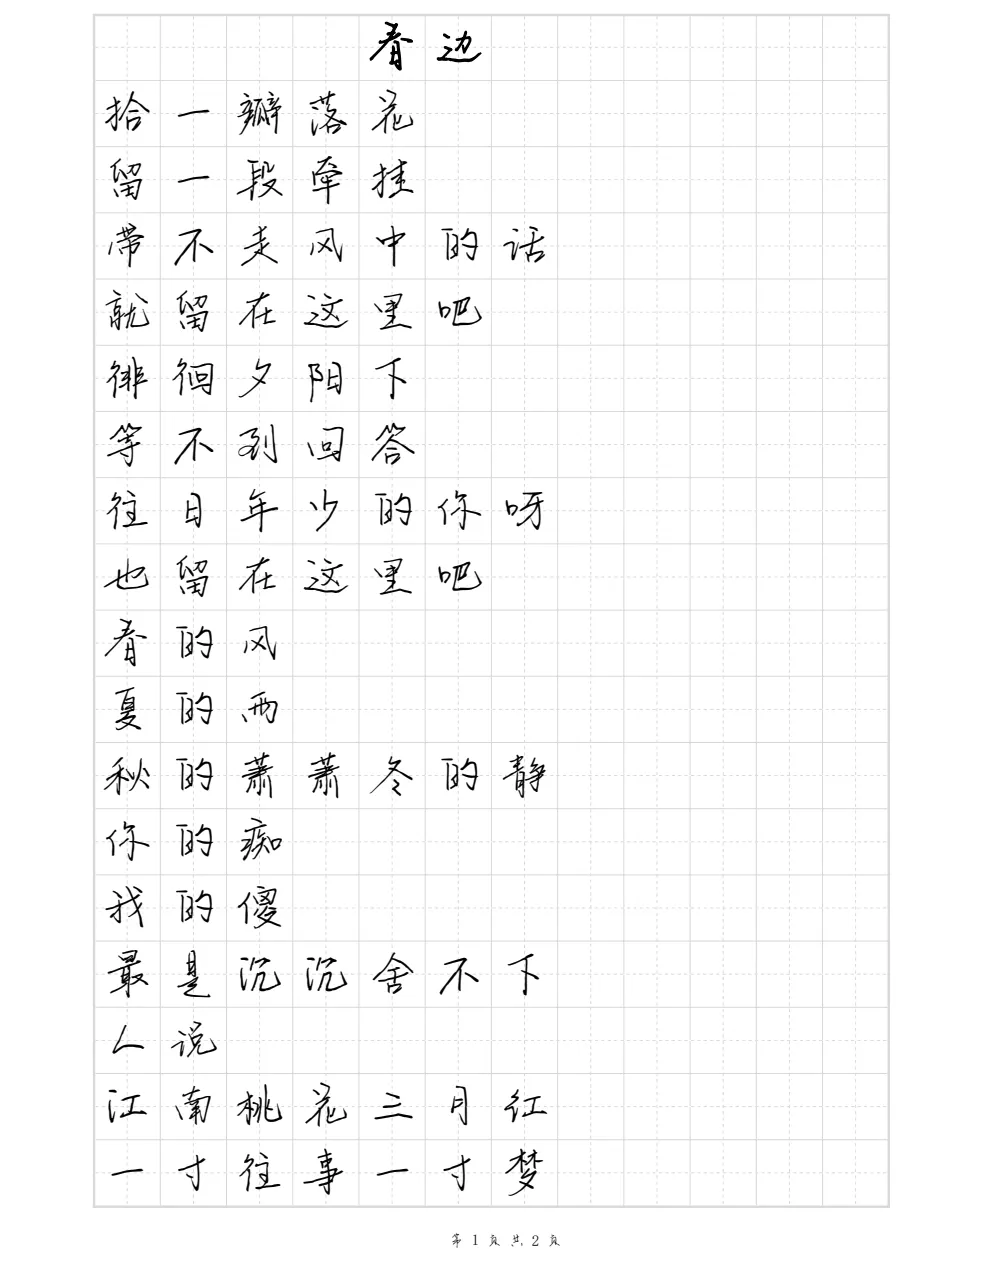 春边
拾一瓣落花
留一段牵挂
带不走风中的话
就留在这里吧
徘徊夕阳下
等不到回答
往日年少的你呀
也留在这里吧
春的风
夏的雨
秋的萧萧冬的静
你的痴
我的傻
最是沉沉舍不下
人说
江南桃花三月红
一寸往事一寸梦
第1页共2页